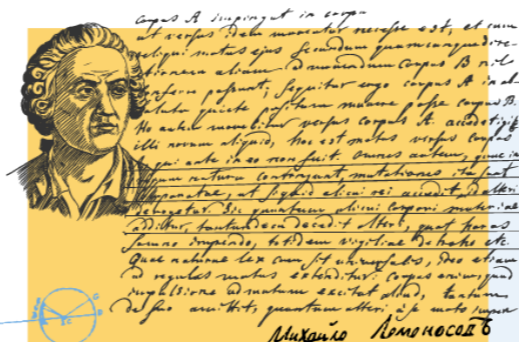 corpus A impingat in corpu
ut versus idem moveatur necesse est, et cum
reliqui motus ejus secundum quamcunque dire-
ctionem aliam ad movendum corpus B nihil
conferre possunt; sequitur ergo corpus A in ab-
soluta quiete positum movere posse corpus B.
Ho autem movebitur versus corpus A: accedet igit
illi novum aliquid, hoc est motus versus corpus
A qui ante in eo non fuit. Omnes autem, quae in
rerum natura contingunt, mutationes ita sunt
comparatae, ut si quid alicui rei accedit, id alteri
derogetur. Sic quantum alicui corpori materiae
additur, tantundem decedit alteri, quot horas
somno impendo, totidem vigiliae detraho etc.
Quae naturae lex cum sit universalis, ideo etiam
ad regulas motus extenditur: corpus enim, quod
impulsione ad motum excitat aliud, tantum
de suo amittit, quantum alteri a se moto
Михайло Ломоносовъ